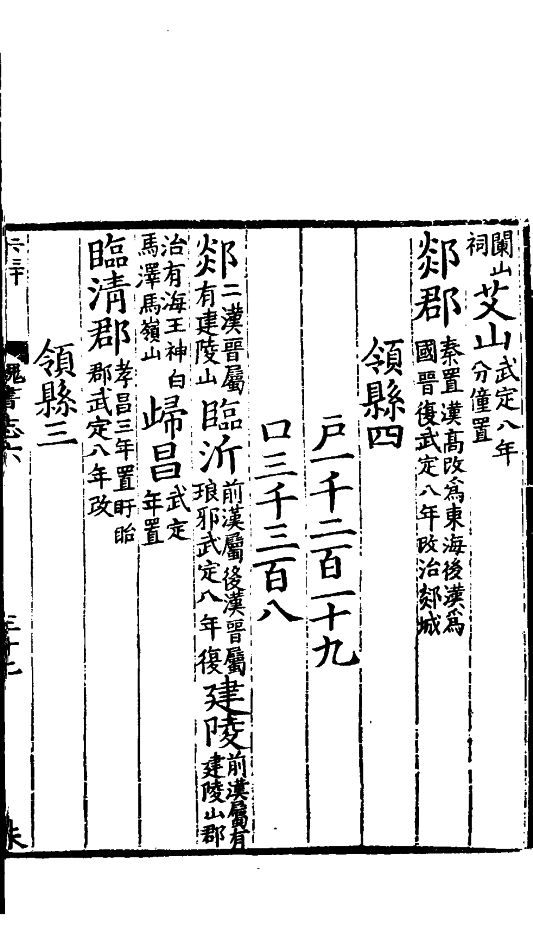 闌山祠艾山武定八年分僮置
郯郡秦置漢高改爲東海後漢爲國晉復武定八年改治郯城
領縣四
戸一千二百一十九
口三千三百八
郯二漢晉屬有建陵山臨沂前漢屬後漢晉屬琅邪武定八年復建陵前漢屬有建陵山郡
治有海王神白馬澤馬嶺山歸昌武定年置
臨清郡孝昌三年置盱眙郡武定八年改
領縣三
魏書志六
三十七
朱